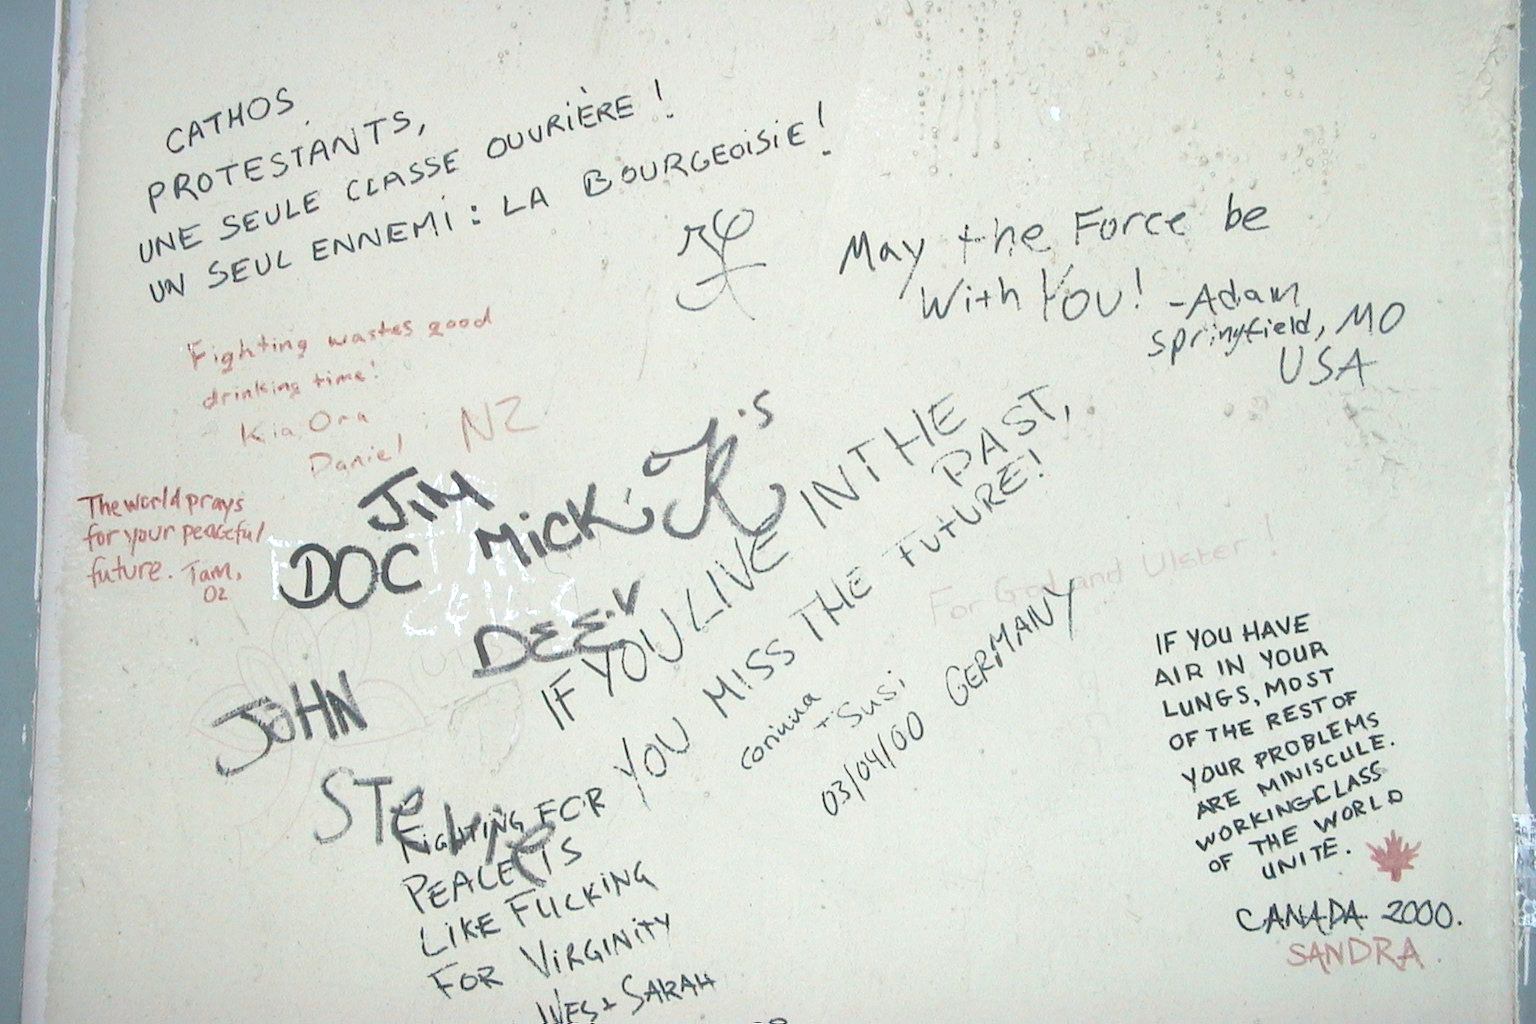 CATHOS,
PROTESTANTS,
UNE SEULE CLASSE OUVRIÈRE !
UN SEUL ENNEMI : LA BOURGEOISIE !
May the Force be
With You! -Adam
Springfield, MO
USA
Fighting wastes good
drinking time!
Kia Ora
Daniel NZ
The world prays
for your peaceful
future. Tam,
02
JIM
DOC MiCK
DEE.V
JOHN
STEVIE
IF YOU LIVE IN THE
PAST,
YOU MISS THE FUTURE!
Corinna
+ Susi
03/04/00 GERMANY
For God and Ulster !
FiGHTING FOR
PEACE IS
LIKE FUCKING
FOR VIRGINITY
WES + SARAH
IF YOU HAVE
AIR IN YOUR
LUNGS, MOST
OF THE REST OF
YOUR PROBLEMS
ARE MINISCULE.
WORKING-CLASS
OF THE WORLD
UNITE.
CANADA 2000.
SANDRA